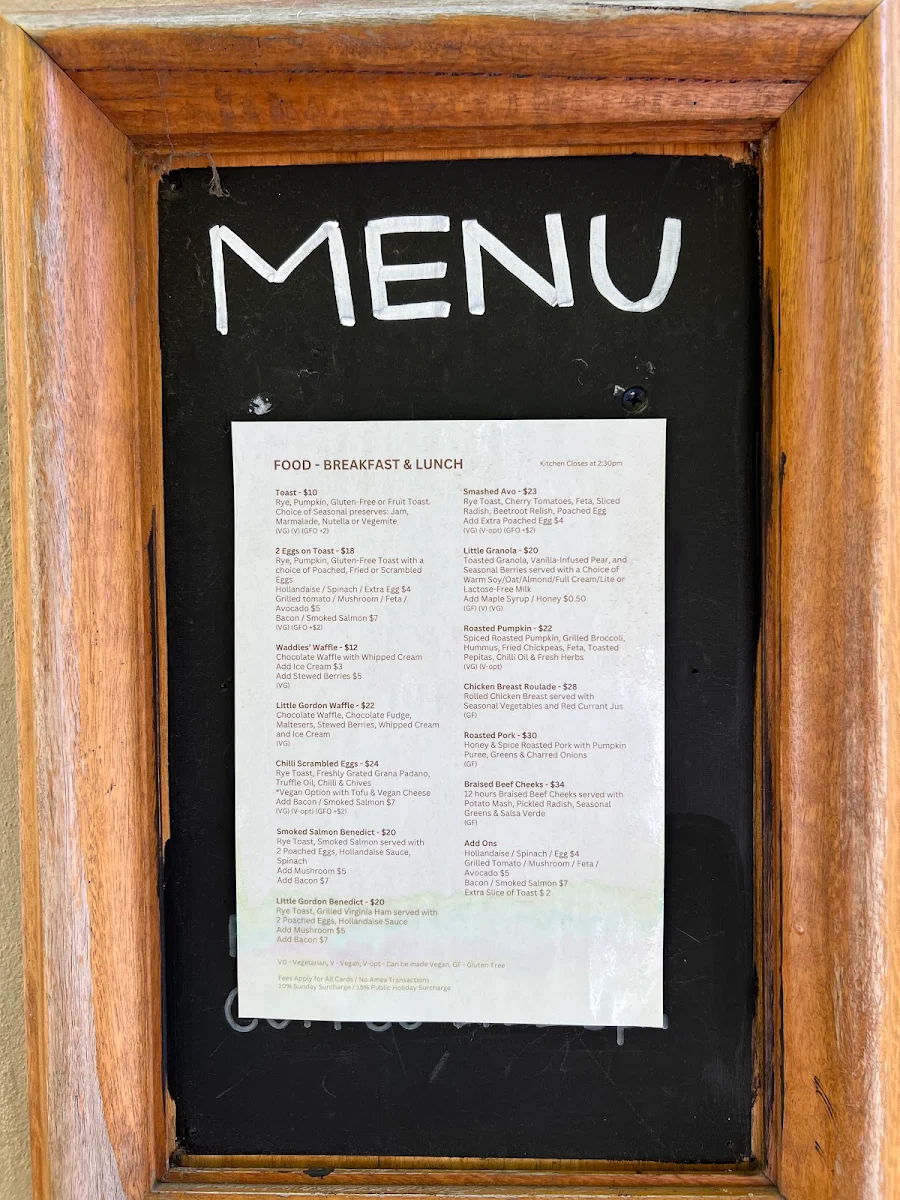 MENU
FOOD - BREAKFAST & LUNCH
Kitchen Closes at 2:30pm
Toast - $10
Rye, Pumpkin, Gluten-Free or Fruit Toast.
Choice of Seasonal preserves: Jam,
Marmalade, Nutella or Vegemite
(VG) (V) (GFO +2)
2 Eggs on Toast - $18
Rye, Pumpkin, Gluten-Free Toast with a
choice of Poached, Fried or Scrambled
Eggs
Hollandaise / Spinach / Extra Egg $4
Grilled tomato / Mushroom / Feta /
Avocado $5
Bacon / Smoked Salmon $7
(VG) (GFO +$2)
Waddles' Waffle - $12
Chocolate Waffle with Whipped Cream
Add Ice Cream $3
Add Stewed Berries $5
(VG)
Little Gordon Waffle - $22
Chocolate Waffle, Chocolate Fudge,
Maltesers, Stewed Berries, Whipped Cream
and Ice Cream
(VG)
Chilli Scrambled Eggs - $24
Rye Toast, Freshly Grated Grana Padano,
Truffle Oil, Chilli & Chives
*Vegan Option with Tofu & Vegan Cheese
Add Bacon / Smoked Salmon $7
(VG) (V-opt) (GFO +$2)
Smoked Salmon Benedict - $20
Rye Toast, Smoked Salmon served with
2 Poached Eggs, Hollandaise Sauce,
Spinach
Add Mushroom $5
Add Bacon $7
Little Gordon Benedict - $20
Rye Toast, Grilled Virginia Ham served with
2 Poached Eggs, Hollandaise Sauce
Add Mushroom $5
Add Bacon $7
Smashed Avo - $23
Rye Toast, Cherry Tomatoes, Feta, Sliced
Radish, Beetroot Relish, Poached Egg
Add Extra Poached Egg $4
(VG) (V-opt) (GFO +$2)
Little Granola - $20
Toasted Granola, Vanilla-Infused Pear, and
Seasonal Berries served with a Choice of
Warm Soy/Oat/Almond/Full Cream/Lite or
Lactose-Free Milk
Add Maple Syrup / Honey $0.50
(GF) (V) (VG)
Roasted Pumpkin - $22
Spiced Roasted Pumpkin, Grilled Broccoli,
Hummus, Fried Chickpeas, Feta, Toasted
Pepitas, Chilli Oil & Fresh Herbs
(VG) (V-opt)
Chicken Breast Roulade - $28
Rolled Chicken Breast served with
Seasonal Vegetables and Red Currant Jus
(GF)
Roasted Pork - $30
Honey & Spice Roasted Pork with Pumpkin
Puree, Greens & Charred Onions
(GF)
Braised Beef Cheeks - $34
12 hours Braised Beef Cheeks served with
Potato Mash, Pickled Radish, Seasonal
Greens & Salsa Verde
(GF)
Add Ons
Hollandaise / Spinach / Egg $4
Grilled Tomato / Mushroom / Feta /
Avocado $5
Bacon / Smoked Salmon $7
Extra Slice of Toast $ 2
VG - Vegetarian, V - Vegan, V-opt - Can be made Vegan, GF - Gluten-Free
Fees Apply for All Cards / No Amex Transactions
10% Sunday Surcharge / 15% Public Holiday Surcharge